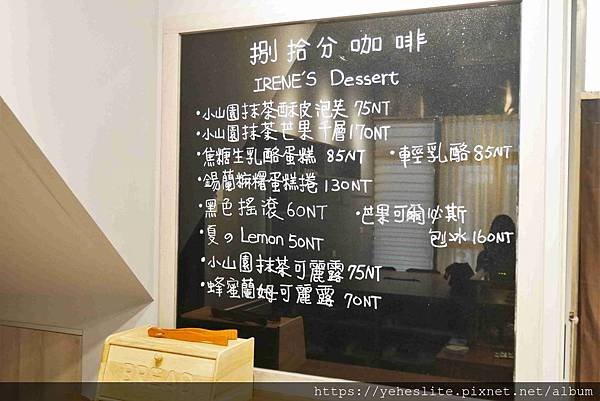 捌拾分咖啡
IRENE'S Dessert
・小山園抹茶酥皮泡芙 75NT
・小山園抹茶芒果千層170NT
・焦糖生乳酪蛋糕 85NT
・輕乳酪85NT
・錫蘭麻糬蛋糕捲 130NT
・黑色搖滾 60NT
・芒果可爾必斯
刨冰160NT
・夏の Lemon 50NT
・小山園抹茶可麗露75NT
・蜂蜜蘭姆可麗露 70NT
https://yeheslite.pixnet.net/album